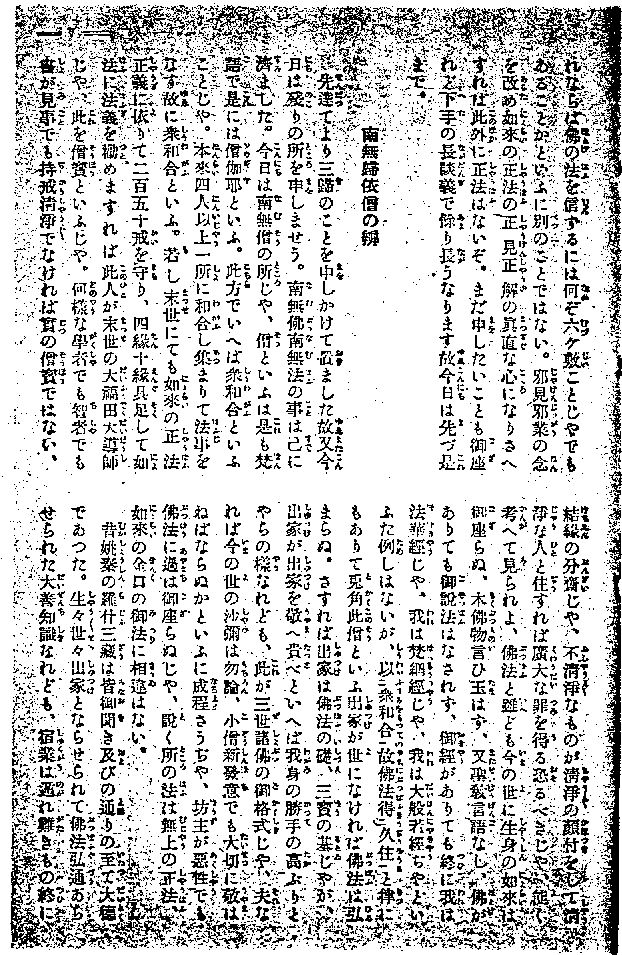 れならは佛の法を信ずるには何ぞ六ケ敷ことじやでも
あることかといふに別のことではない。邪見邪業の念
を改め如來の正法の正見正解の眞直な心になりさへ
すれは此外に正法はないぞ。まだ申したいことも御座
れど下手の長談義で餘り長うなります故今日は先づ是
まで。
南無歸依僧の辨
先達てより三歸のことを申しかけて置ました故又今
日は殘りの所を申しませう。南無佛南無法の事は已に
濟ました。今日は南無僧の所じや、僧といふは是も梵
語で是には僧伽耶といふ。此方でいへば衆和合といふ
ことじや。本來四人以上一所に和合し集まりて法事を
なす故に衆和合といふ。若し末世にても如來の正法
正義に依りて二百五十戒を守り、四緣十緣具足して如
法に法義を勸めますれば此人が末世の大福田大導師
じや、此を僧寶といふじや。何樣な學者でも智者でも
書が見事でも持戒淸淨でなければ實の僧寶ではない、
結緣の分齋じや、不淸淨なものが淸淨の顏付をして淸
淨な人と住すれば廣大な罪を得る恐るべきじや、能く
考へて見られよ、佛法と雖ども今の世に生身の如來は
御座らぬ、木佛物言ひ玉はす、又聖敎言語なし、佛が
ありても御說法はなされす、御經がありても終に我は
法華經じや、我は梵網經じや、我は大般若經ぢやとい
ふた例しはないが、以衆和合故佛法得久住と律に
もありて兎角此僧といふ出家が世になければ佛法は弘
まらぬ。さすれば出家は佛法の礎、三寶の基じやが、
出家が出家を敬へ貴べといへば我身の勝手の高ぶりと
やらの樣なれども、此が三世諸佛の御格式じや、夫な
れば今の世の沙彌は勿論、小僧新發意でも大切に敬は
ねばならぬかといふに成程さうぢや、坊主が惡性でも
佛法に過は御座らぬじや、說く所の法は無上の正法
如來の金口の御法に相違はない。
昔姚秦の羅什三藏は皆御聞き及びの通りの至て大德
であつた。生々世々出家とならせられて佛法弘通あら
せられた大善知識なれども、宿業は遁れ難きもの終に